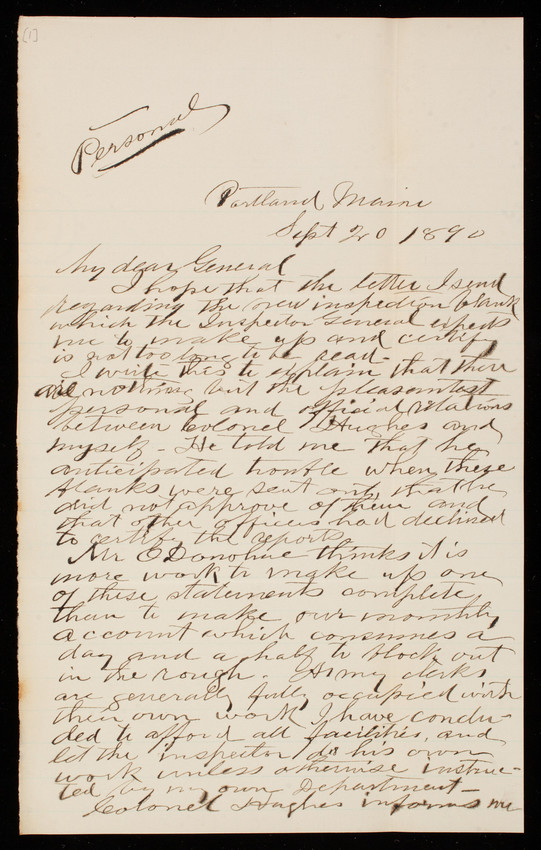 [1]
Personal
Portland Maine
Sept 20 1890
My dear General
I hope that the letter I send
regarding the new inspection blank
which the Inspector General expects
me to make up and certify
is not too long to be read-
I write this to explain that there
are nothing but the pleasantest
personal and official relations
between Colonel Hughes and
myself- He told me that he
anticipated trouble when these
blanks were sent out, that he
did not approve of them and
that other officers had declined
to certify the reports
Mr O'Donohue thinks it is
more work to make up one
of these statements complete
than to make our monthly
account which consumes a
day and a half to block out
in the rough. As my clerks
are generally fully occupied with
their own work, I have conclu-
ded to afford all facilities, and
let the inspector do his own
work unless otherwise instruc-
ted by my own Department-
Colonel Hughes informs me